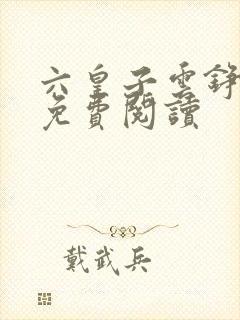 六皇子雲錚
免費閱讀
戴武兵